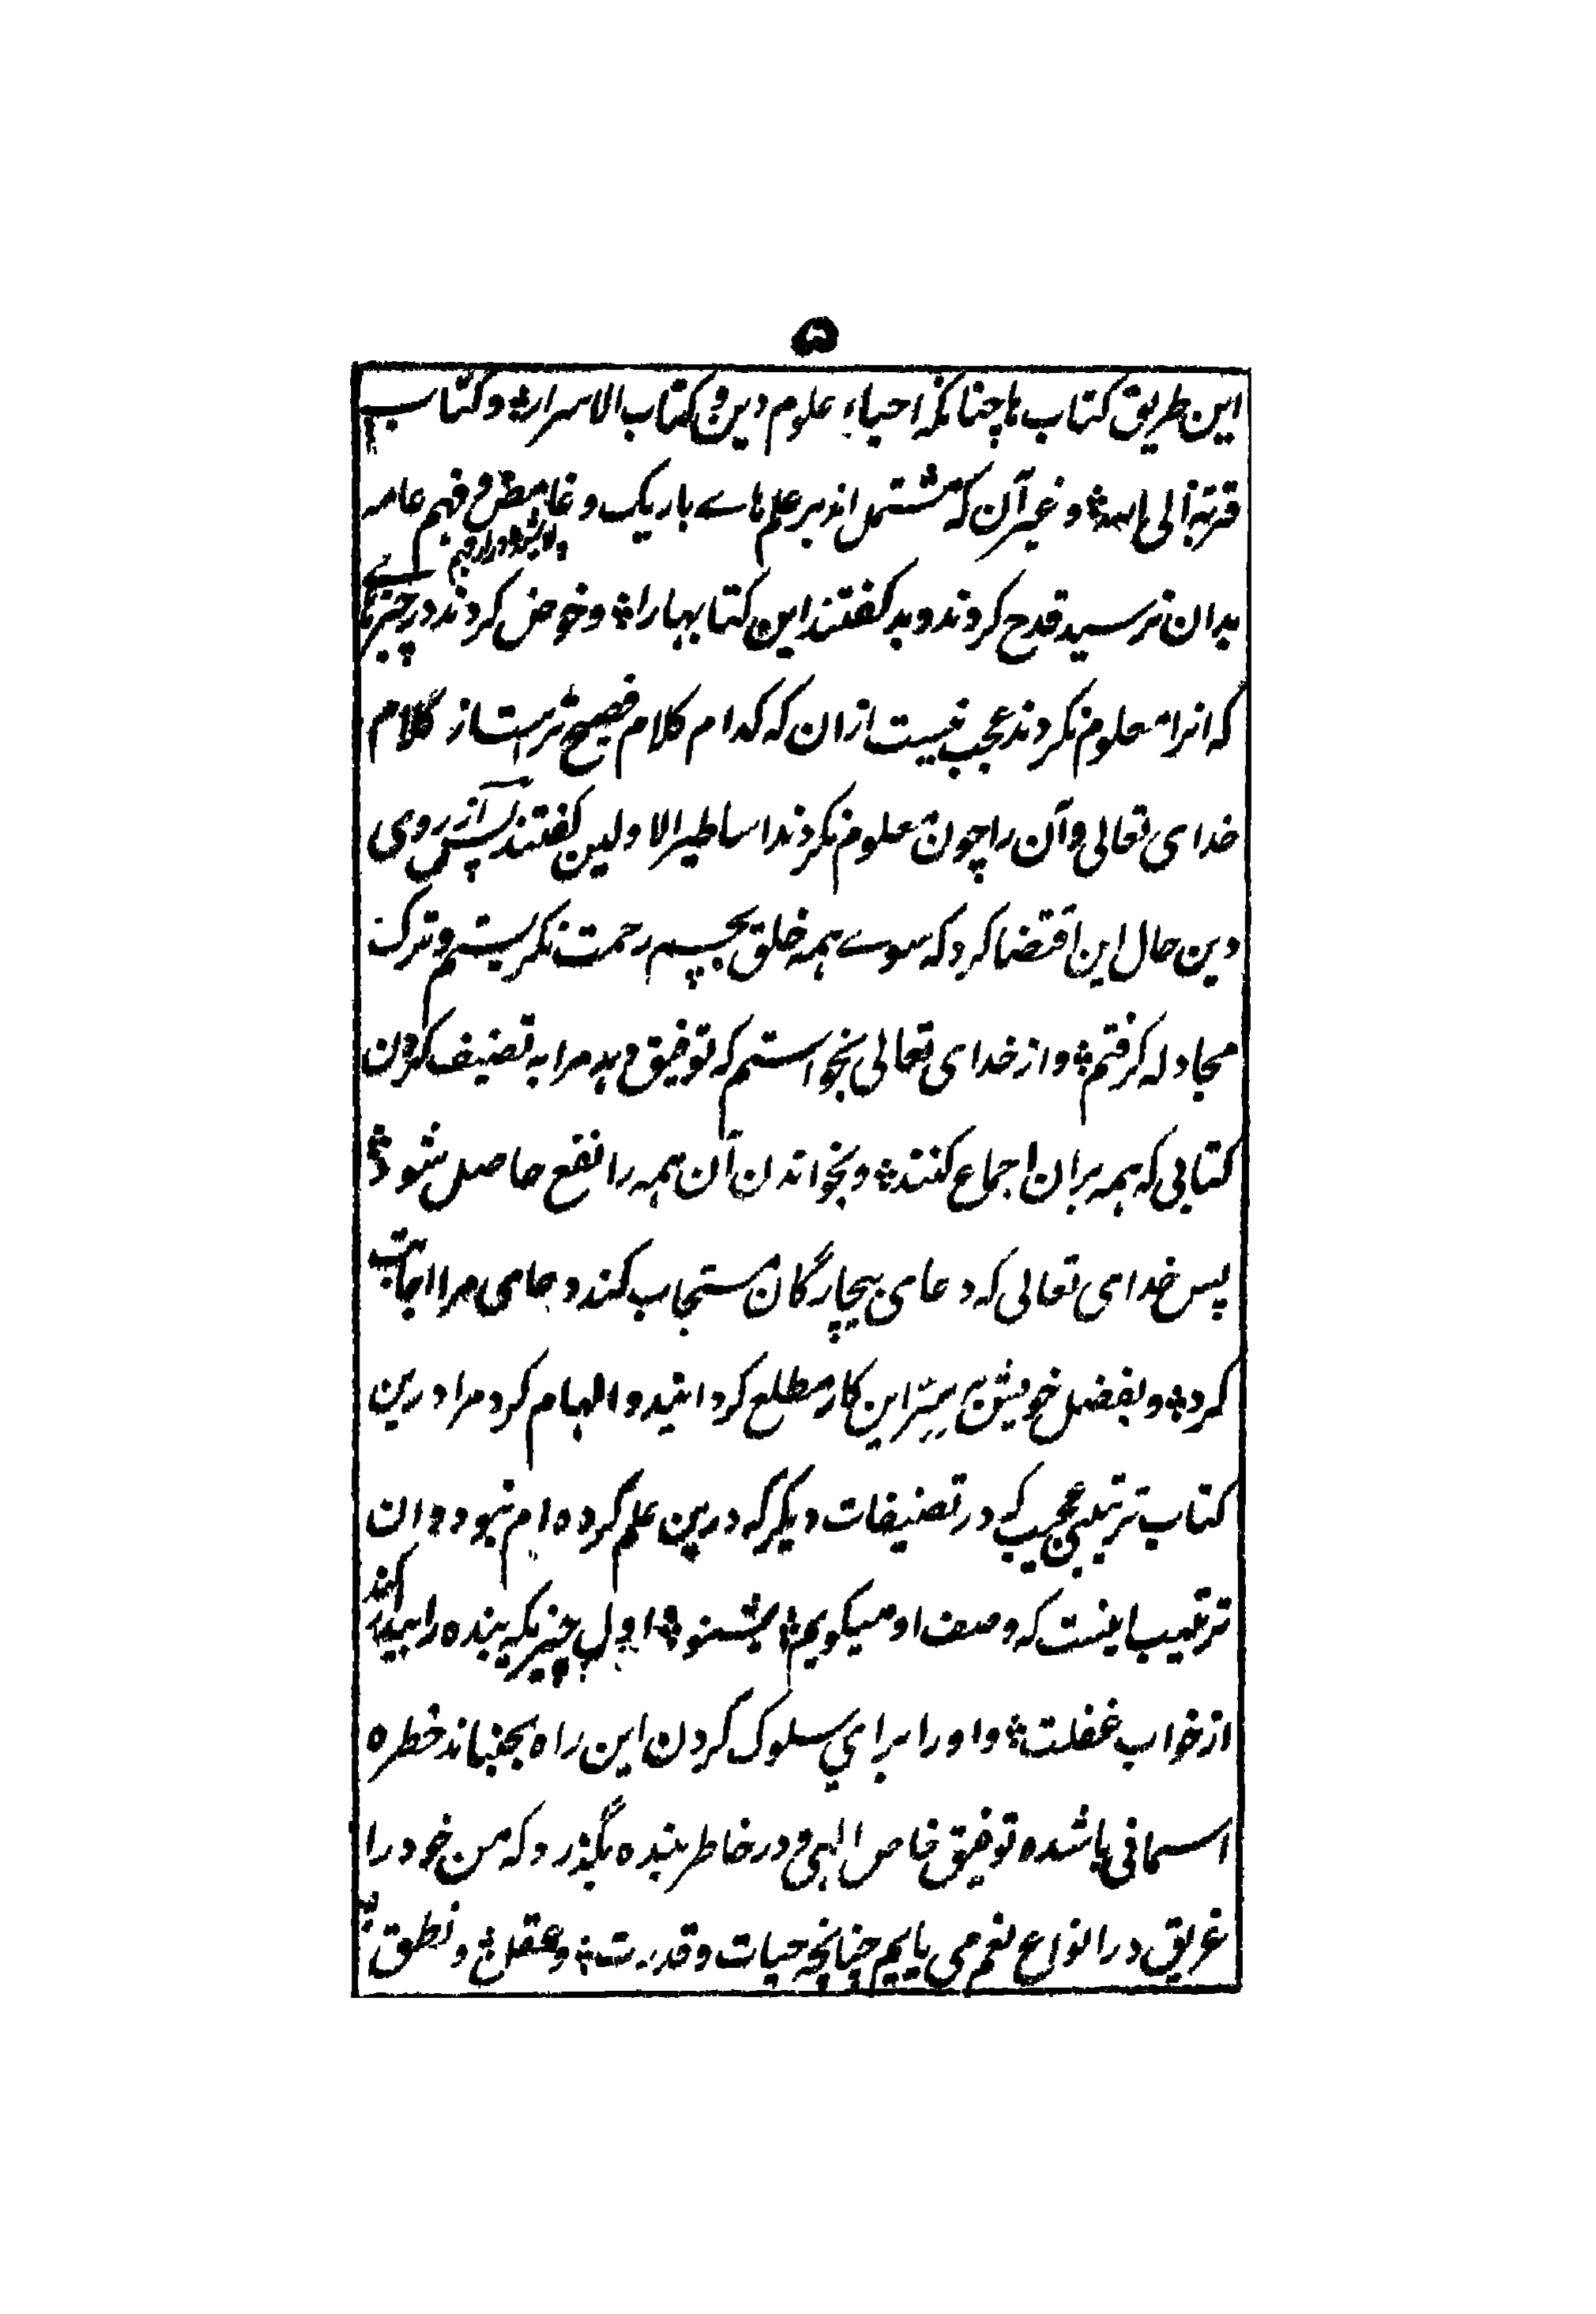 ۵
این طریق کتاب ها چنانکه احیاء علوم دین و کتاب الاسرار؞ و کتاب
قربة الی الله؞ و غیر آن که مشتمل اند بر علم هاے باریک و غامض و فهم عامه
بدان نرسید قدح کردند و بد کفتند این کتابها را؞ و خوض کردند در چیزهاے
که انرا معلوم نکردند عجب نیست ازان که کدام کلام فصیح تر است از کلام
خدای تعالی و آن را چون معلوم نکردند اساطیر الاولین کفتند پس از روی
دین حال این اقتضا کرد که سوے همه خلق بچسم رحمت نکریستم و ترک
مجادله کرفتم؞ و از خدای تعالی بخواستم که توفیق دهد مرا به تصنیف کردن
کتابی که همه بران اجماع کنند؞ و بخواندن آن همه را نفع حاصل شود؞
پس خدای تعالی که دعای بیچارگان مستجاب کند دعای مرا اجابت
کرد؞ و بفضل خویش بر سِرّ این کار مطلع کردانید و الهام کرد مرا درین
کتاب ترتیبی عجیب که در تصنیفات دیکر که درین علم کرده ام نبود و ان
ترتیب اینست که وصف او میکویم؞ بشنو؞ اول چیزیکه بنده را بیدار کند
از خواب غفلت؞ و او را براي سلوک کردن این راه بجنباند خطره
اسمانی باشد؞ توفیق خاص الهی و در خاطر بنده بگذرد که من خود را
غریق در انواع نعم می یابم چنانچه حیات و قدرت؞ و عقل؞ و نطق؞